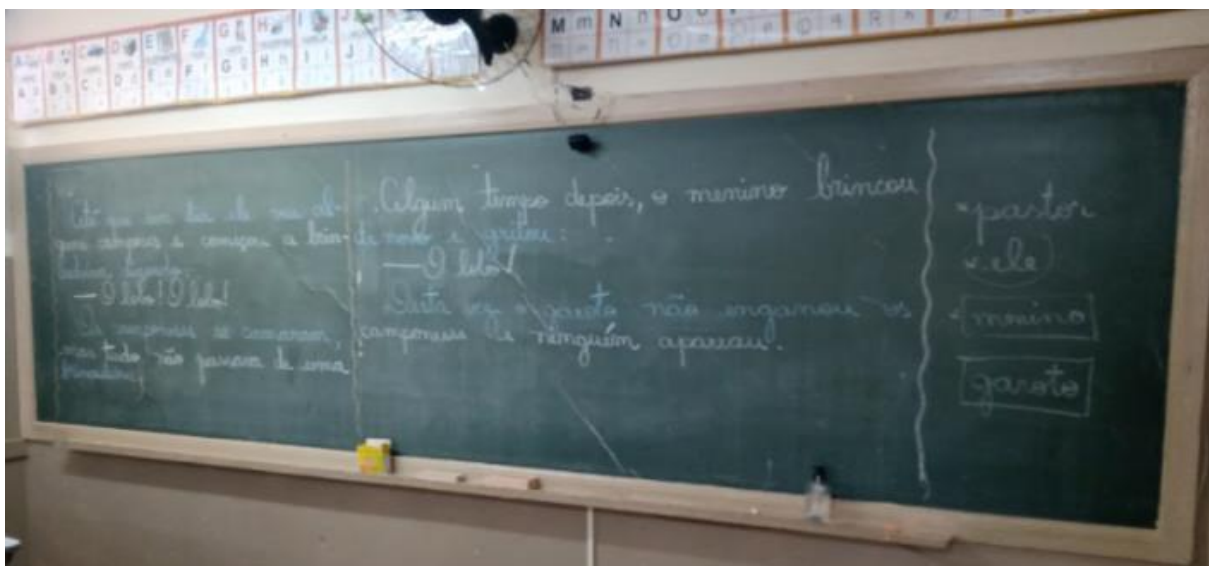 A B C D E F G H I J
M m N n O
Até que um dia ele viu al-
guns camponeses e começou a brin-
dizendo:
— O lobo! O lobo!
Os camponeses se
mas tudo não passava de uma
brincadeira!
Algum tempo depois, o menino brincou
de novo e gritou:
— O lobo!
Desta vez o garoto não enganou os
camponeses e ninguém apareceu.
*pastor
*ele
*menino
garoto